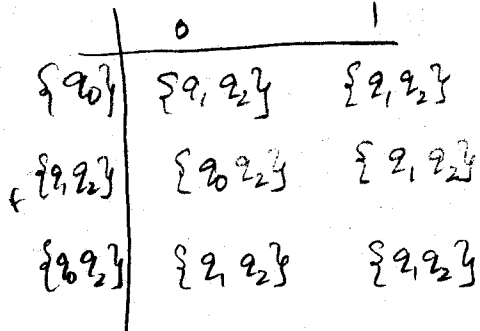 0 1
{q0} {q1 q2} {q1 q2}
{q1 q2} {q0 q2} {q1 q2}
{q0 q2} {q1 q2} {q1 q2}